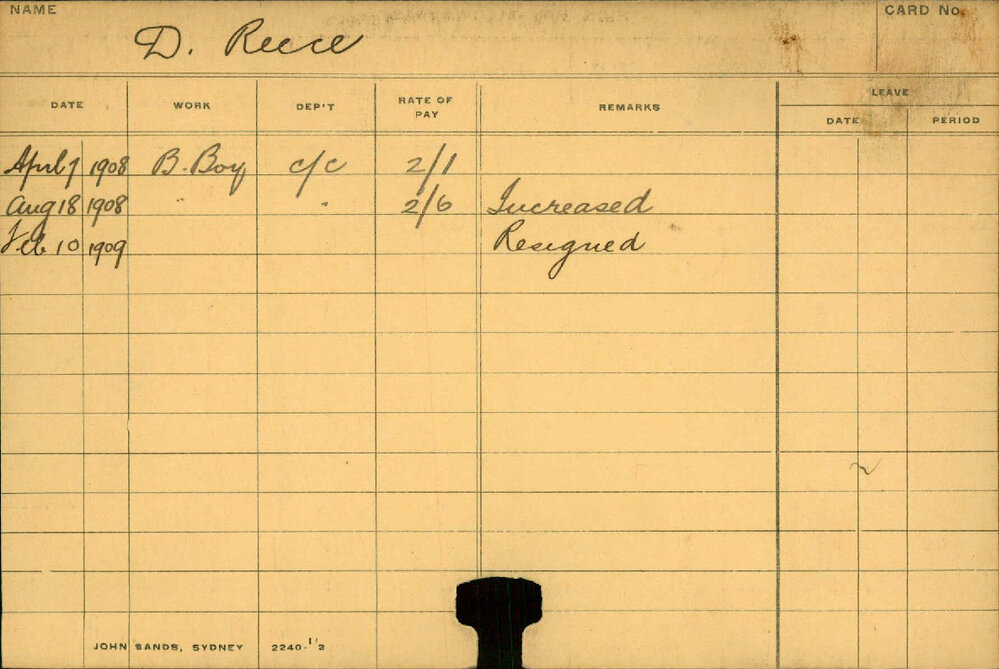 NAME CARD No.
D. Reece
DATE WORK DEP'T RATE OF PAY REMARKS LEAVE
DATE PERIOD
April 7 1908 B. Boy c/c 2/1
Aug 18 1908 " " 2/6 Increased
Feb 10 1909 Resigned
JOHN SANDS, SYDNEY 2240-1'2